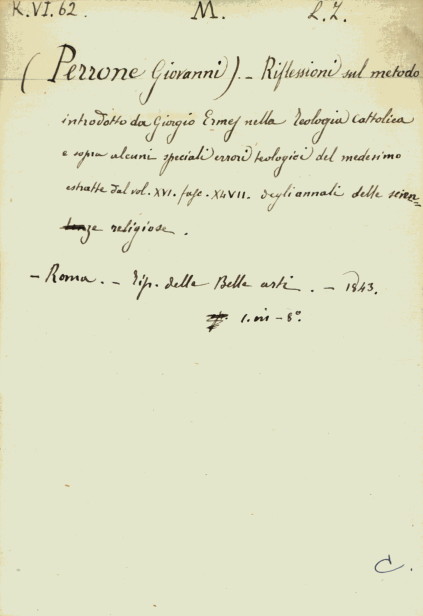 K.VI.62 M. L.Z.
(Perrone Giovanni). - Riflessioni sul metodo
introdotto da Giorgio Ermes nella Teologia Cattolica
e sopra alcuni speciali errori teologici del medesimo
estratte dal vol. XVI. fasc. X4VII. degli annali delle scien-
ze religiose.
- Roma. - Tip. delle Belle arti. - 1843.
1. in - 8°.
C.